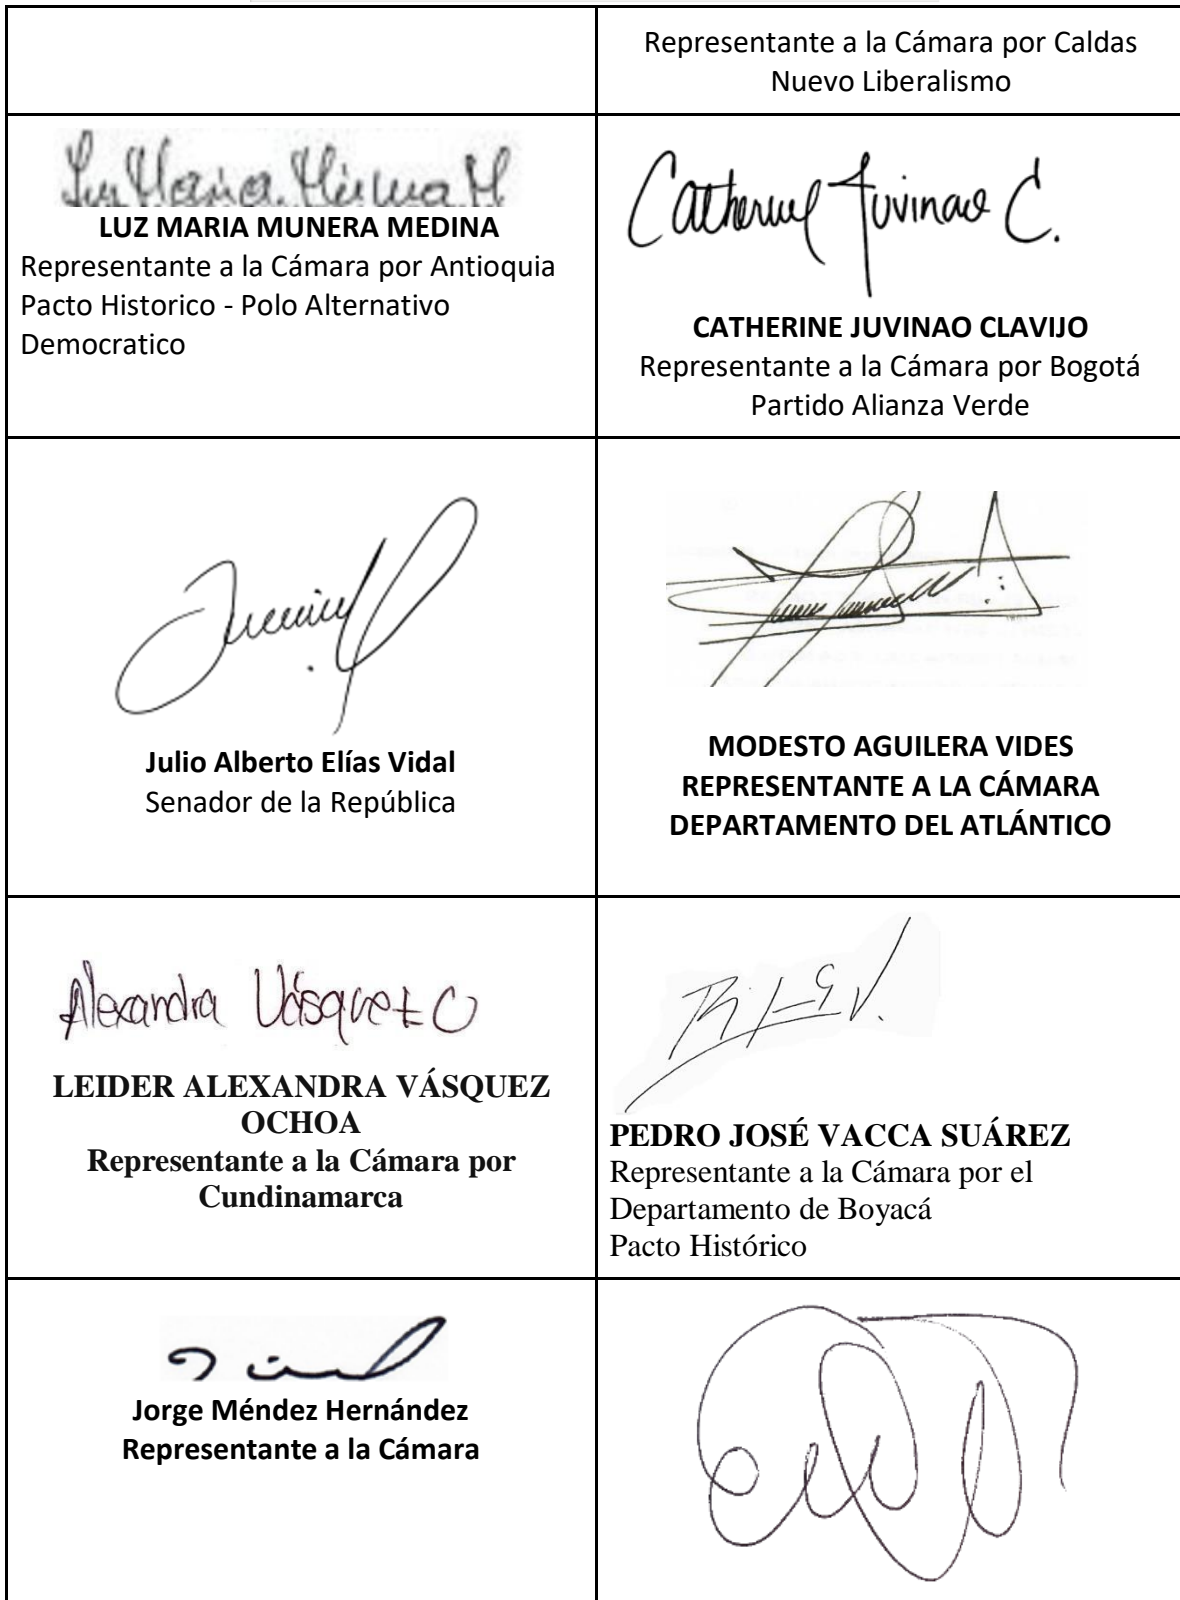 Representante a la Cámara por Caldas
Nuevo Liberalismo
Luz Maria Munera M
LUZ MARIA MUNERA MEDINA
Representante a la Cámara por Antioquia
Pacto Historico - Polo Alternativo
Democratico
Catherine Juvinao C.
CATHERINE JUVINAO CLAVIJO
Representante a la Cámara por Bogotá
Partido Alianza Verde
Julio Alberto Elías Vidal
Senador de la República
MODESTO AGUILERA VIDES
REPRESENTANTE A LA CÁMARA
DEPARTAMENTO DEL ATLÁNTICO
Alexandra Vásquez O
LEIDER ALEXANDRA VÁSQUEZ
OCHOA
Representante a la Cámara por
Cundinamarca
PEDRO JOSÉ VACCA SUÁREZ
Representante a la Cámara por el
Departamento de Boyacá
Pacto Histórico
Jorge Méndez Hernández
Representante a la Cámara